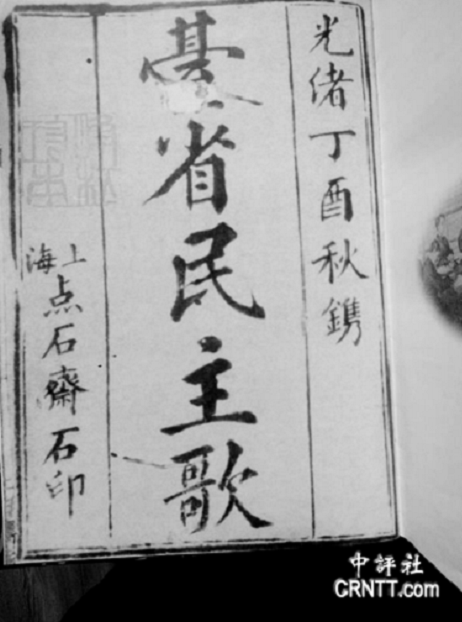 光緒丁酉秋鐫
臺省民主歌
上海点石齋石印
中評社
CRNTT.com